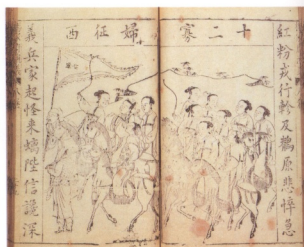 十二寡婦征西
紅粉戎行軫及鶺原悲悼急
義兵家起怪來螭陛信讒深